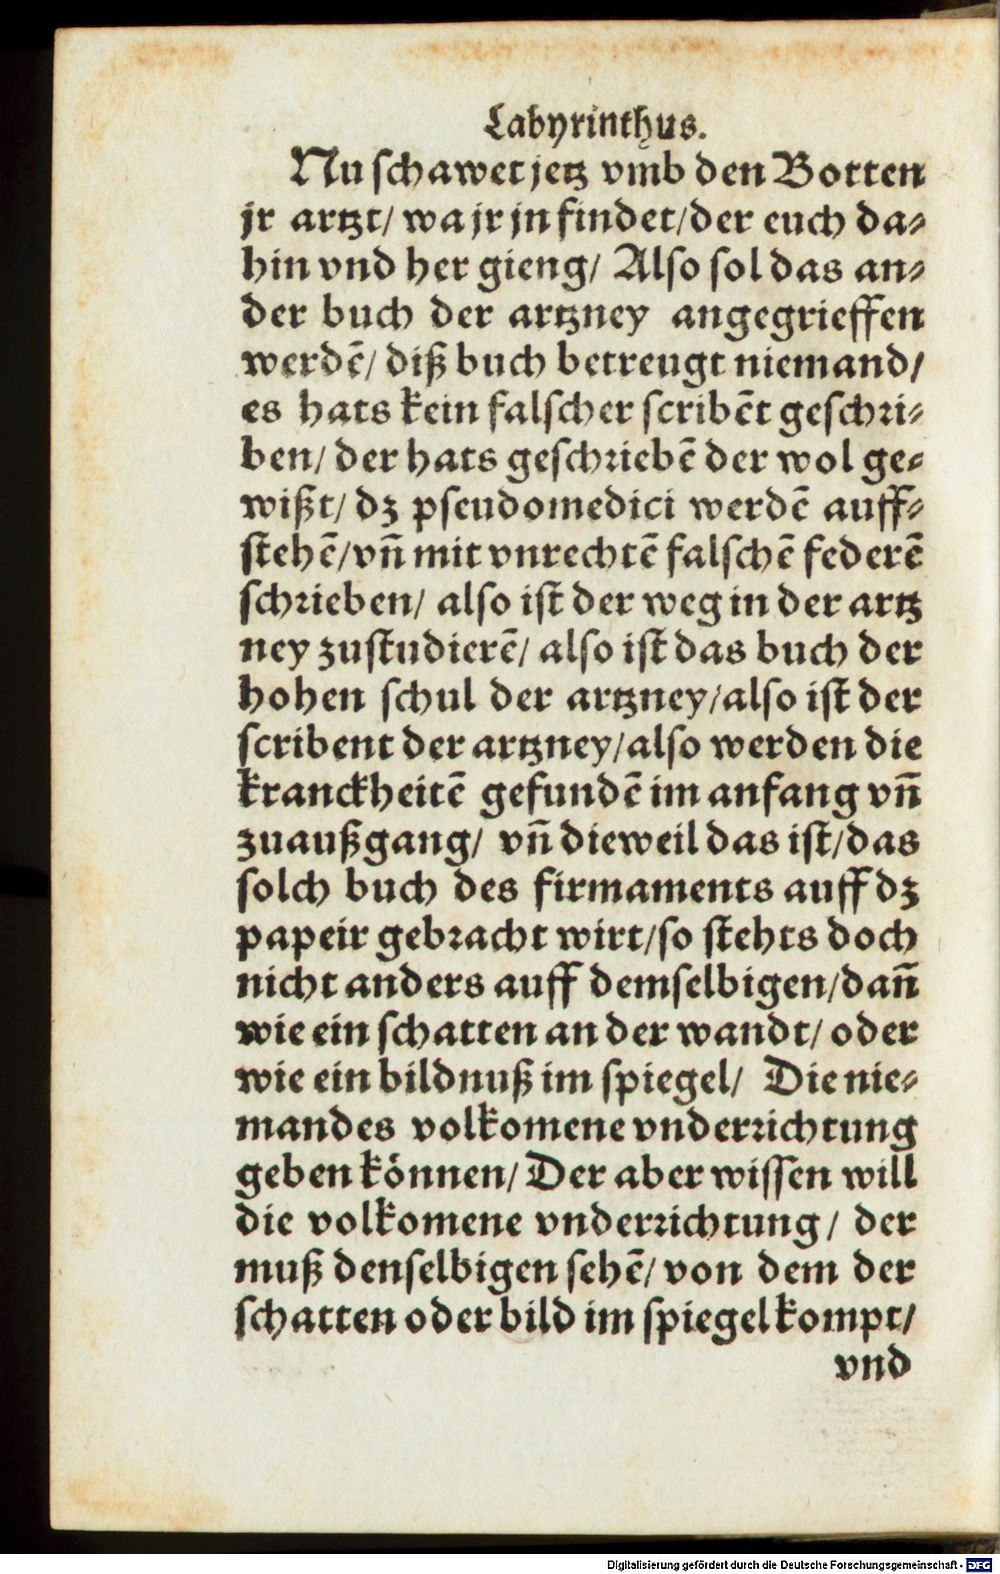 Labyrinthus.
Nu schawet jetz vmb den Botten
jr artzt/ wa jr jn findet/der euch da⸗
hin vnd her gieng/ Also sol das an⸗
der buch der artzney angegrieffen
werdē/ diß buch betreugt niemand/
es hats kein falscher scribēt geschri⸗
ben/ der hats geschriebē der wol ge⸗
wißt/ dz pseudomedici werdē auff⸗
stehē/vñ mit vnrechtē falschē federē
schrieben/ also ist der weg in der artz
ney zustudierē/ also ist das buch der
hohen schul der artzney/also ist der
scribent der artzney/also werden die
kranckheitē gefundē im anfang vñ
zuaußgang/ vñ dieweil das ist/das
solch buch des firmaments auff dz
papeir gebracht wirt/so stehts doch
nicht anders auff demselbigen/dañ
wie ein schatten an der wandt/ oder
wie ein bildnuß im spiegel/ Die nie⸗
mandes volkomene vnderrichtung
geben können/ Der aber wissen will
die volkomene vnderrichtung/ der
muß denselbigen sehē/ von dem der
schatten oder bild im spiegel kompt/
vnd
Digitalisierung gefördert durch die Deutsche Forschungsgemeinschaft - DFG